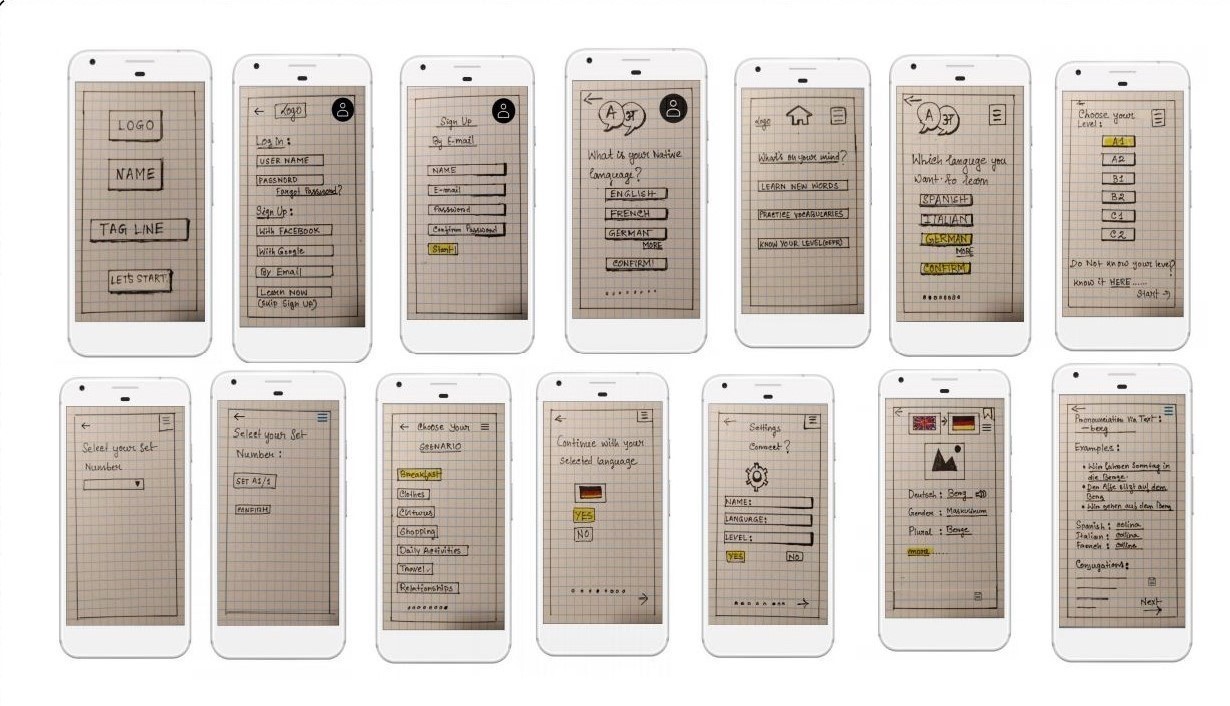 LOGO
NAME
TAG LINE
LET'S START
Logo
Log in:
USER NAME
PASSWORD
Forgot Password?
Sign Up:
With FACEBOOK
With Google
By Email
Learn NOW
(Skip Sign UP)
Sign Up
By E-mail
NAME
E-mail
Password
Confirm Password
Start
A अ
What is your Native
language?
ENGLISH
FRENCH
GERMAN
MORE
CONFIRM!
Logo
What's on your mind?
LEARN NEW WORDS
PRACTICE VOCABULARIES
KNOW YOUR LEVEL(CEFR)
A अ
Which languge you
want to learn
SPANISH
ITALIAN
GERMAN
MORE
CONFIRM
Choose your
Level:
A1
A2
B1
B2
C1
C2
Do Not know your level?
Know it HERE......
Start →
Select your Set
Number
Select your Set
Number:
SET A1/1
Choose Your
SCENARIO
Breakfast
Clothes
Shopping
Daily Activities
Travel
Relationships
Continue with your
selected language
YES
NO
Settings
Correct?
NAME:
LANGUAGE:
LEVEL:
YES NO
Deutsch: Berg
Gender: Maskulinum
Plural: Berge
more
Pronounciation Via Text:
– berg
Examples:
• Wir fahren Sonntag in
die Berge.
• Der Affe sitzt auf dem
Berg
• Wir gehen auf dem Berg
Spanish: colina
Italian: collina
French: colline
Conjugations:
Next